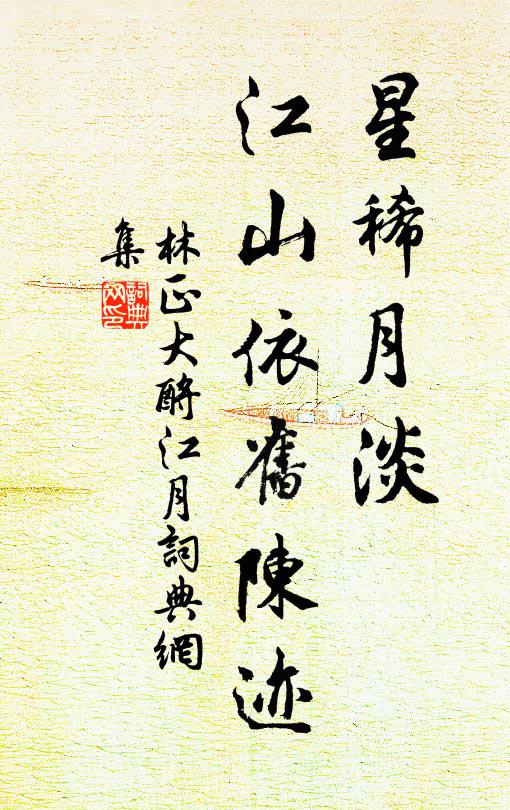 星稀月淡
江山依舊陳迹
林正大酹江月詞典網
集
詞典
网印